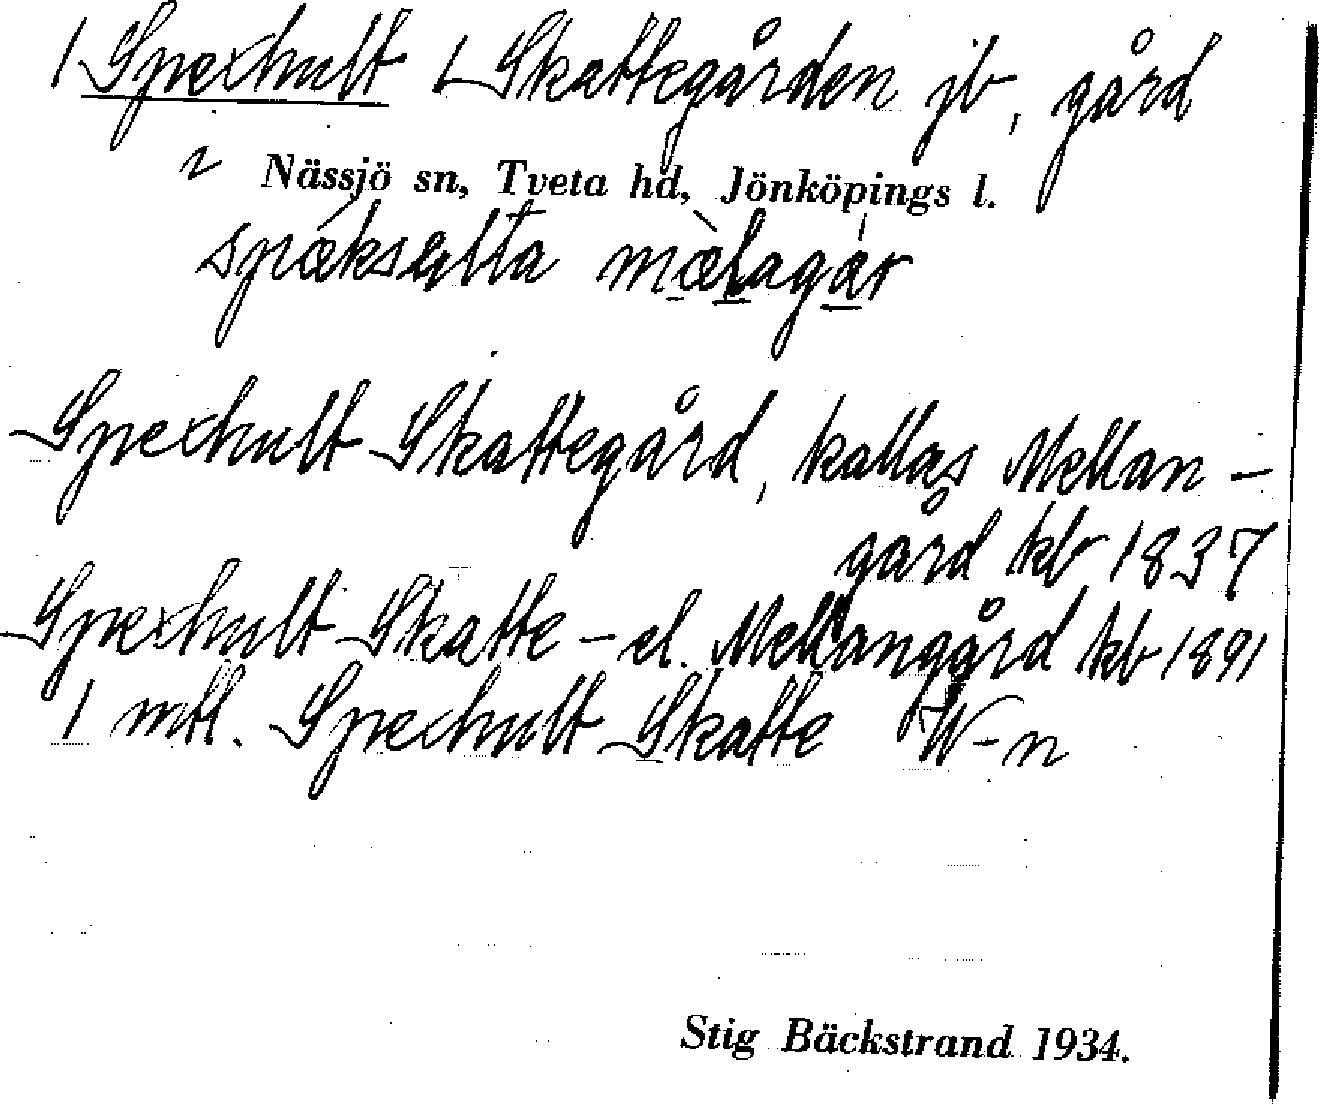 1 Spexhult 1 Skattegården jb, gård
2 Nässjö sn, Tveta hd, Jönköpings l.
Spexhult Skattegård, kallas Mellan-
gård kb 1837
Spexhult Skatte- el. Mellangård kb 1891
1 mtl. Spexhult Skatte W-n
Stig Bäckstrand 1934.